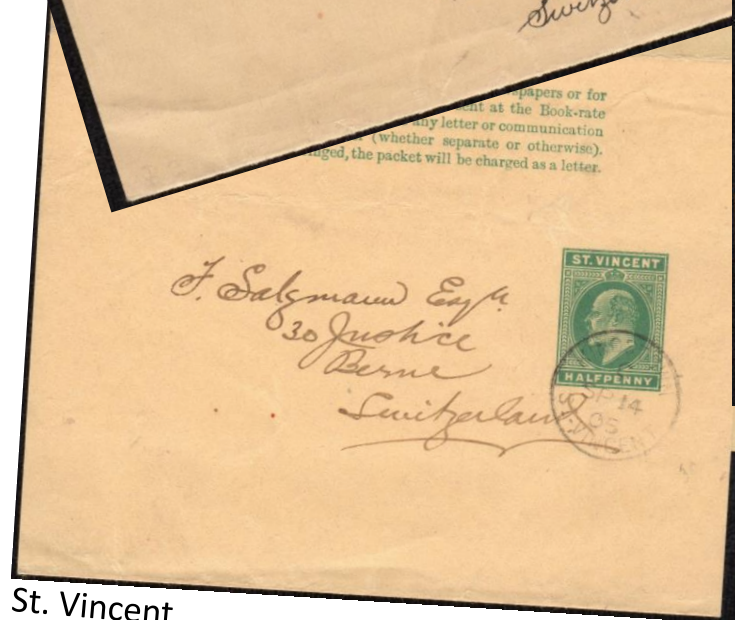 Switze
spapers or for
ent at the Book-rate
any letter or communication
(whether separate or otherwise).
nged, the packet will be charged as a letter.
ST. VINCENT
HALFPENNY
F. Salzmann Esqre
30 Justice
Berne
Switzerland
SP 14
05
ST. VINCENT
St. Vincent